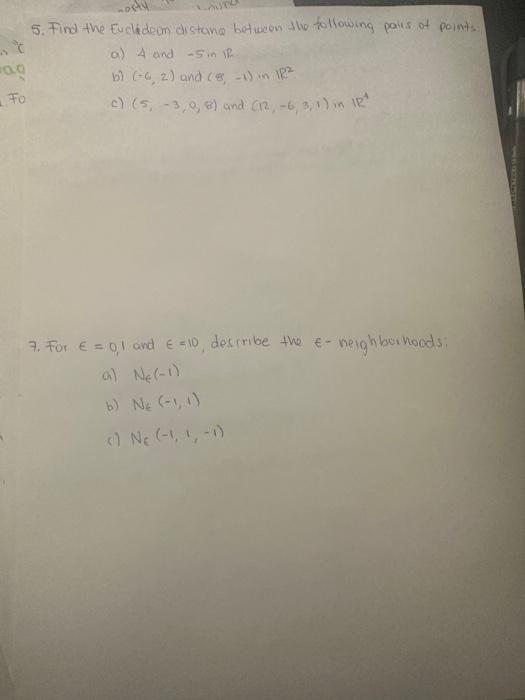 5. Find the Euclidean distance between the following pairs of points.
a) 4 and -5 in ℝ
b) (-6, 2) and (8, -1) in ℝ²
c) (5, -3, 0, 8) and (12, -6, 3, 1) in ℝ⁴
. Fo
7. For ε = 0,1 and ε = 10, describe the ε- neighborhoods:
a) Nε(-1)
b) Nε (-1, 1)
c) Nε (-1, 1, -1)